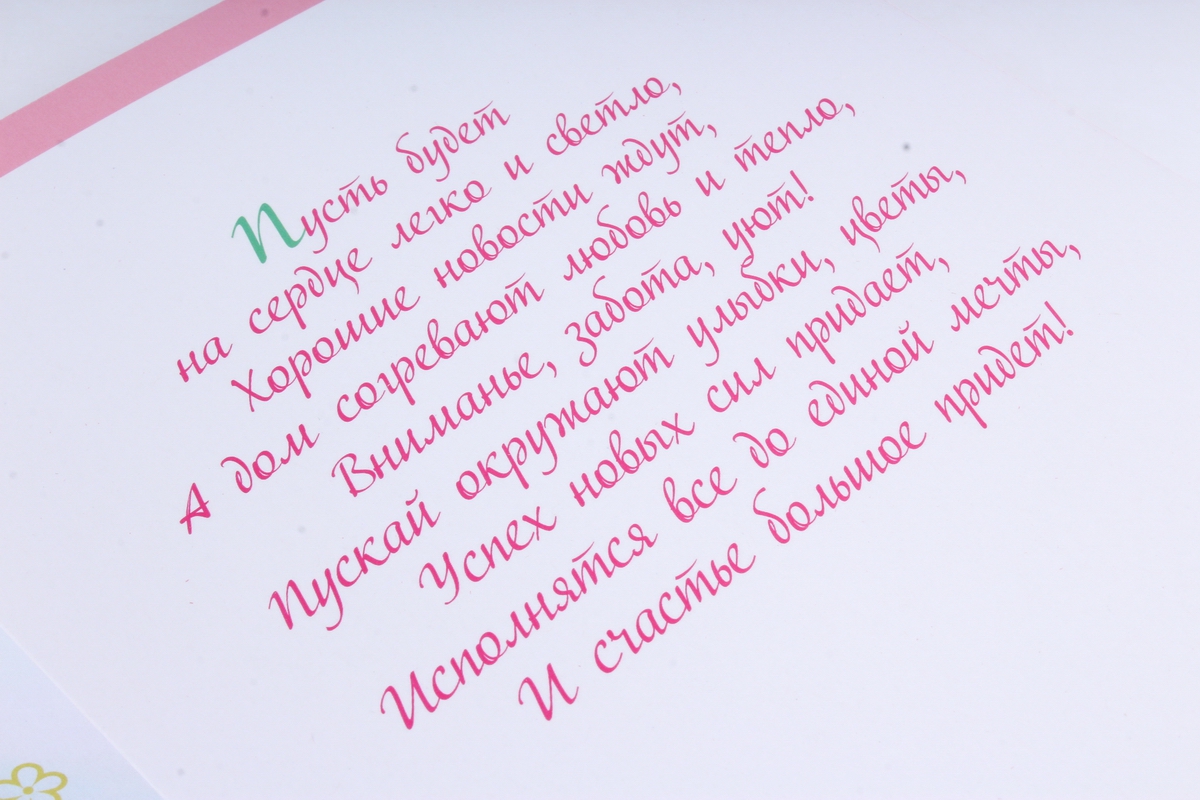 Пусть будет
на сердце легко и светло,
Хорошие новости ждут,
А дом согревают любовь и тепло,
Вниманье, забота, уют!
Пускай окружают улыбки, цветы,
Успех новых сил придает,
Исполнятся все до единой мечты,
И счастье большое придет!